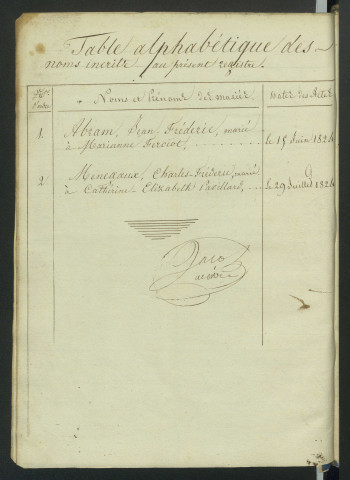 Table alphabétique des
noms inscrits au présent registre.
Nos d'ordre
Noms et Prénoms des mariés.
Dates des Actes
1. Abram, Jean Frédéric, marié
à Marianne Ferciot, le 15 Juin 1824
2. Menegaux, Charles-Fréderic, marié
à Catherine-Elizabeth Pavillard, Le 29 Juillet 1824